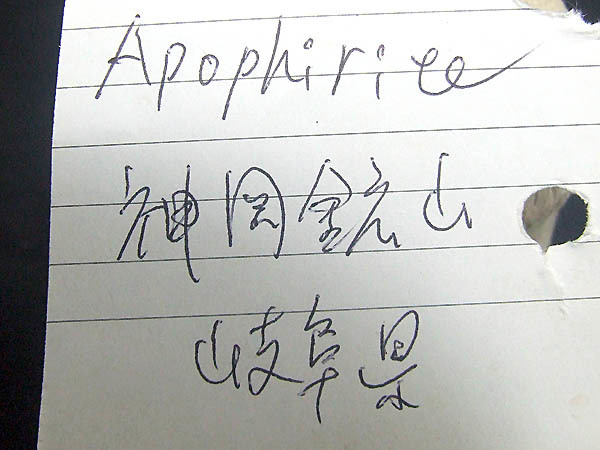 Apophirite
神岡鉱山
岐阜県